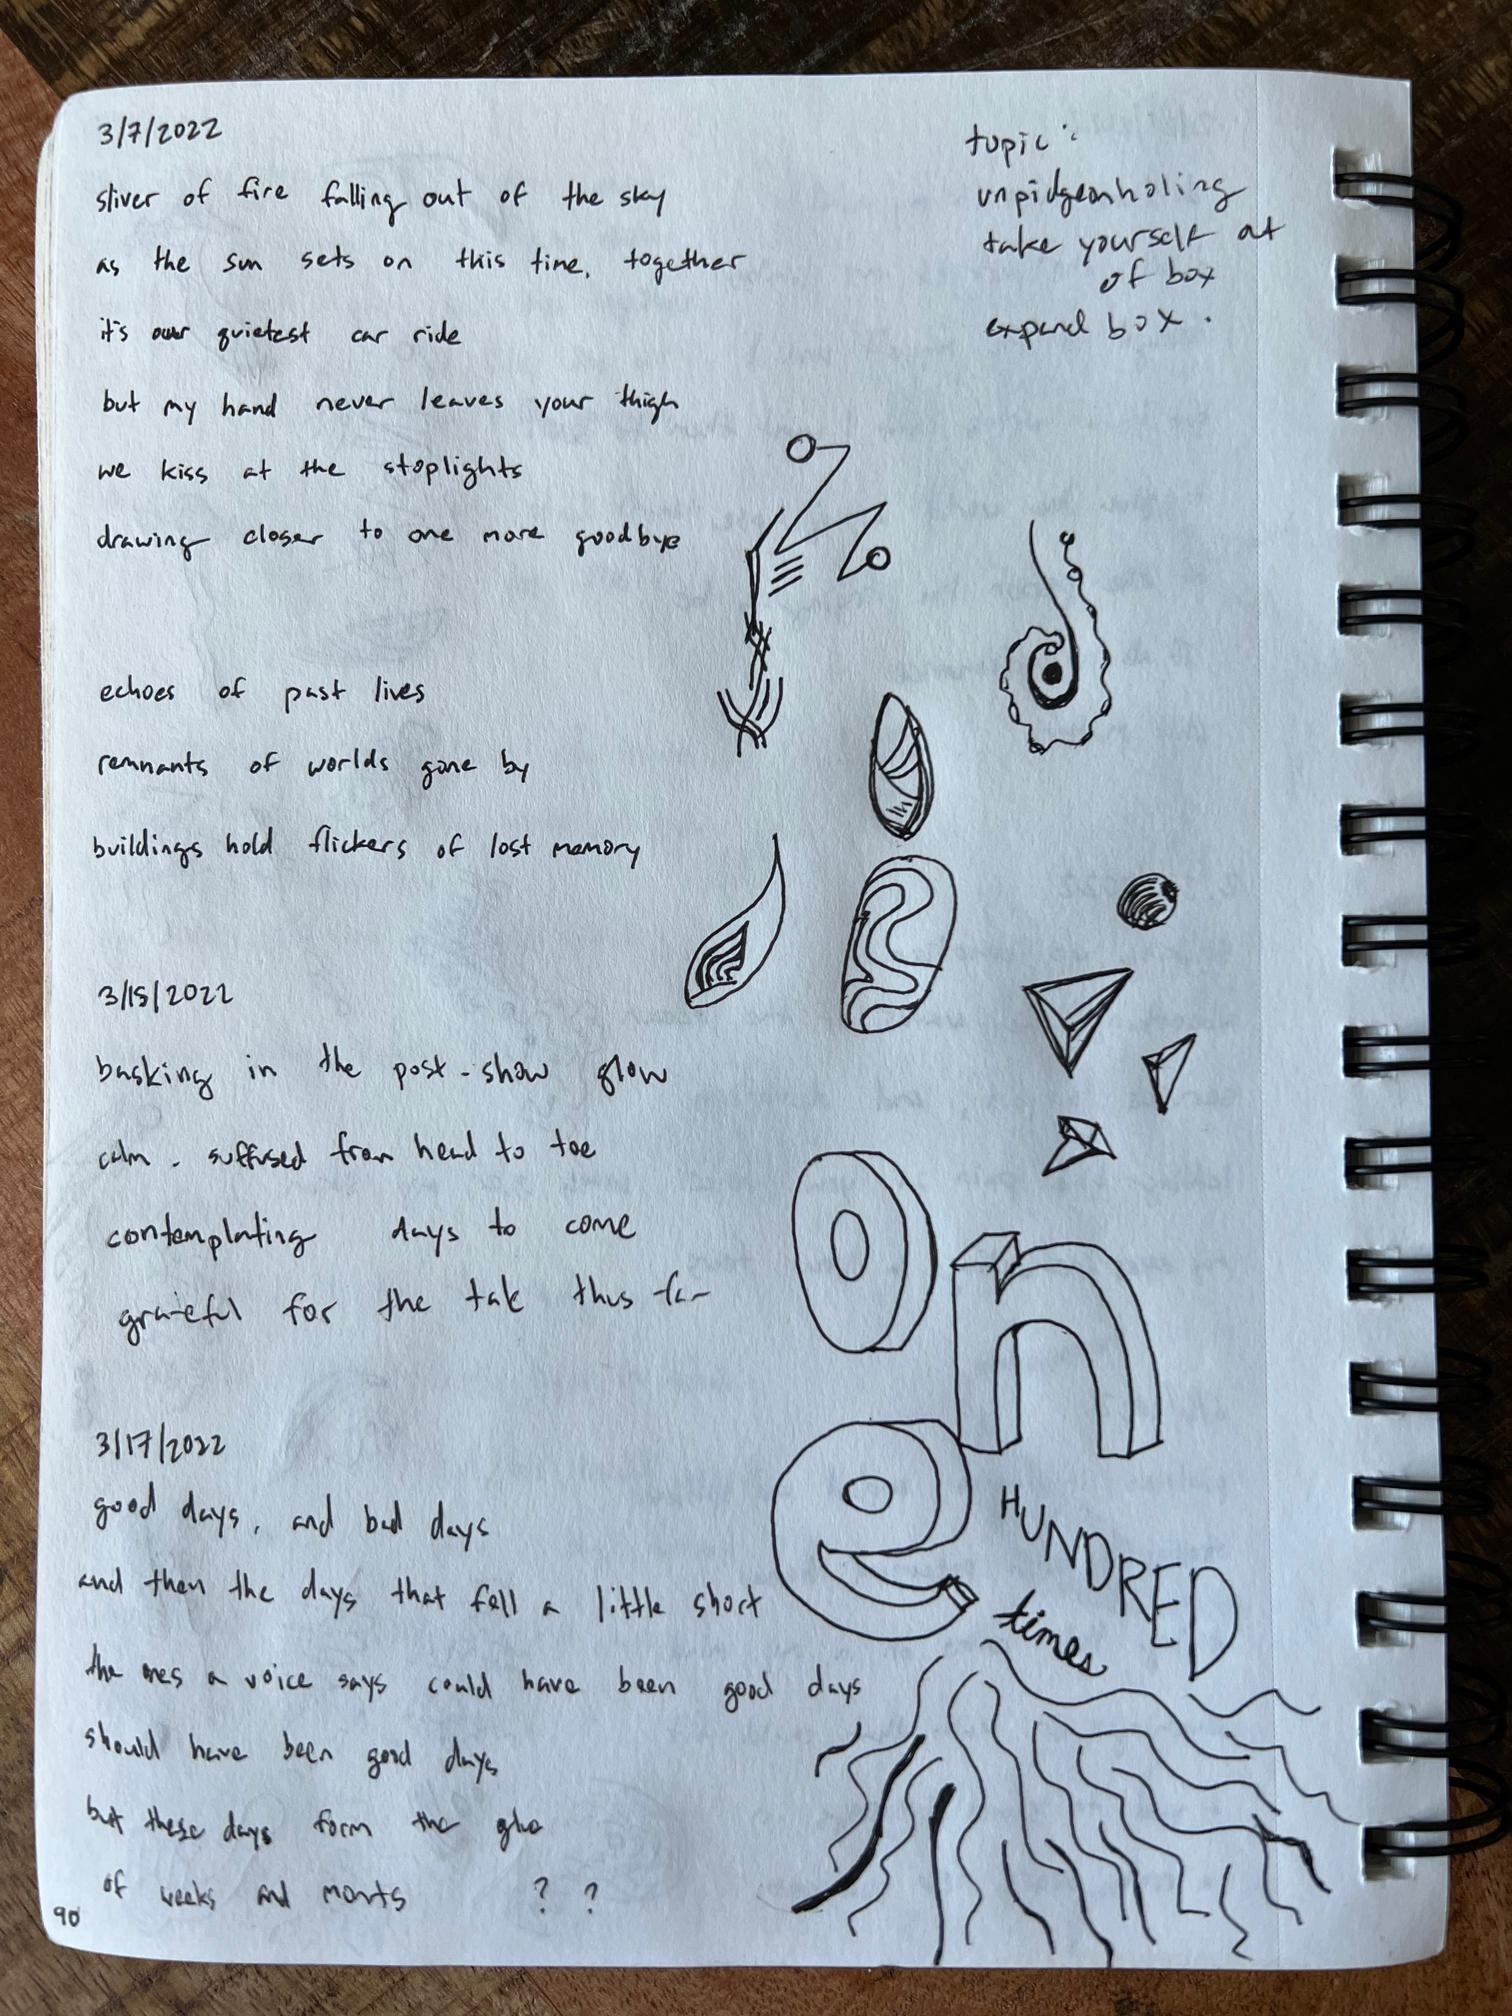 3/7/2022
sliver of fire falling out of the sky
as the sun sets on this time, together
it's our quietest car ride
but my hand never leaves your thigh
we kiss at the stoplights
drawing closer to one more goodbye
echoes of past lives
remnants of worlds gone by
buildings hold flickers of lost memory
3/15/2022
basking in the post-show glow
calm. suffused from head to toe
contemplating days to come
grateful for the tale thus far
3/17/2022
good days, and bad days
and then the days that fell a little short
the ones a voice says could have been good days
should have been good days
but these days form the glue
of weeks and monts ? ?
90
topic:
unpidgeonholing
take yourself ot
of box
expand box.
one
HUNDRED
times